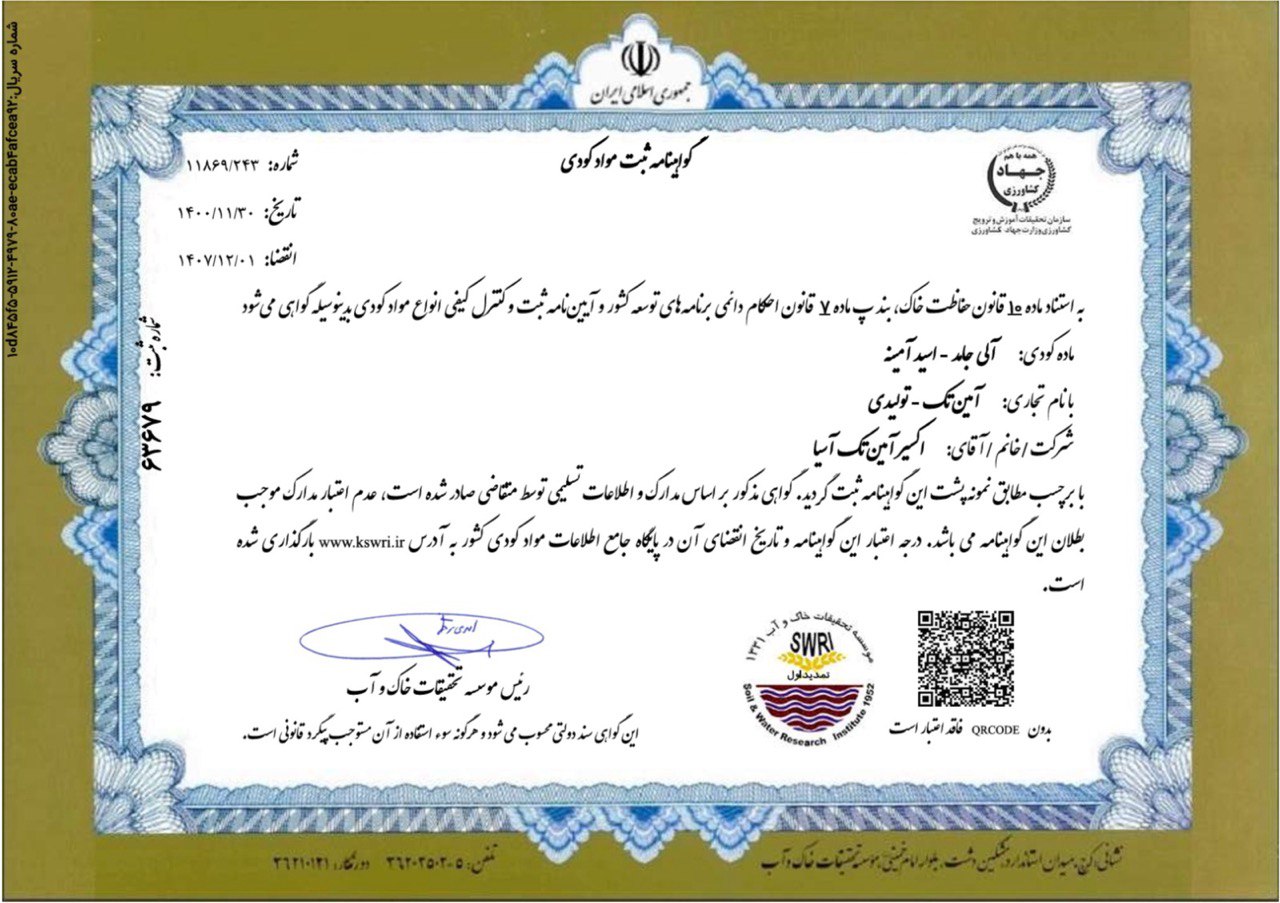 جمهوری اسلامی ایران
گواهینامه ثبت مواد کودی
همه با هم
جهاد
کشاورزی
سازمان تحقیقات آموزش و ترویج
کشاورزی وزارت جهاد کشاورزی
شماره: ۱۱۸۶۹/۲۴۳
تاریخ: ۱۴۰۰/۱۱/۳۰
انقضا: ۱۴۰۷/۱۲/۰۱
شماره ثبت: ۶۳۶۷۹
به استناد ماده ۱۰ قانون حفاظت خاک، بند پ ماده ۷ قانون احکام دائمی برنامه های توسعه کشور و آیین نامه ثبت و کنترل کیفی انواع مواد کودی بدینوسیله گواهی می شود
ماده کودی: آلی جامد - اسید آمینه
با نام تجاری: آمین تک - تولیدی
شرکت / خانم / آقای: اکسیر آمین تک آسیا
با برچسب مطابق نمونه پشت این گواهینامه ثبت گردید. گواهی مذکور بر اساس مدارک و اطلاعات تسلیمی توسط متقاضی صادر شده است، عدم اعتبار مدارک موجب
بطلان این گواهینامه می باشد. درجه اعتبار این گواهینامه و تاریخ انقضای آن در پایگاه جامع اطلاعات مواد کودی کشور به آدرس www.kswri.ir بارگذاری شده
است.
موسسه تحقیقات خاک و آب ۱۳۳۱
SWRI
تمدید اول
Soil & Water Research Institute 1952
بدون QRCODE فاقد اعتبار است
رئیس موسسه تحقیقات خاک و آب
این گواهی سند دولتی محسوب می شود و هرگونه سوء استفاده از آن مستوجب پیگرد قانونی است.
نشانی: کرج، میدان استاندارد، مشکین دشت، بلوار امام خمینی، موسسه تحقیقات خاک و آب
تلفن: ۵-۳۶۲۰۳۵۰۲ دورنگار: ۳۶۲۱۰۱۲۱
شماره سریال: ۱۰d۸۴۵f۵-۵۹۱۲-۴۹۷۹-۸۰ae-ecab۴afcea۹۲